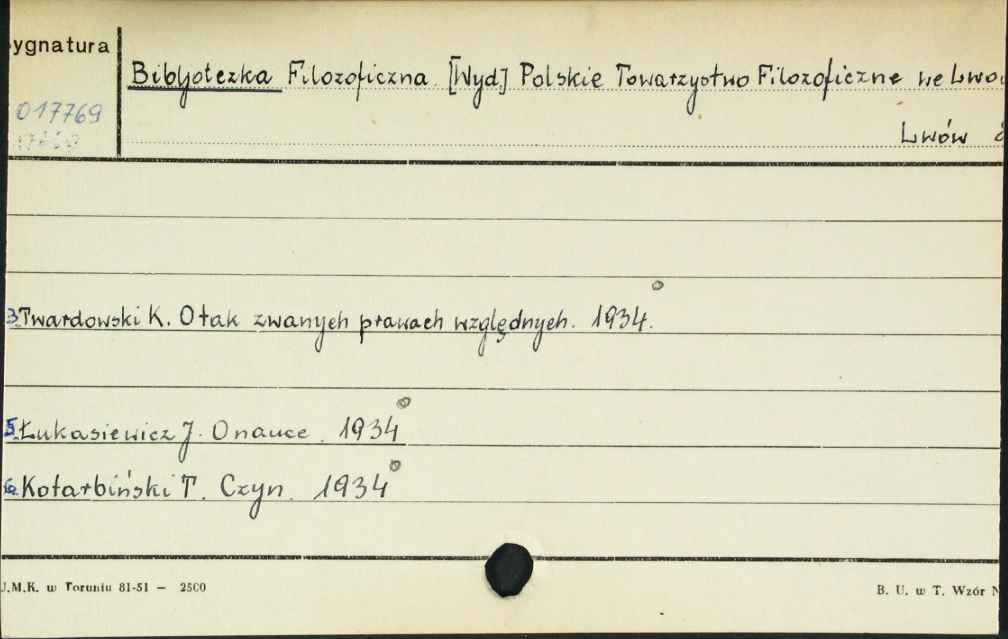 ygnatura
Bibljoteczka Filozoficzna. [Wyd.] Polskie Towarzystwo Filozoficzne we Lwo
017769
Lwów
3. Twardowski K. O tak zwanych prawach względnych. 1934.
5. Łukasiewicz J. O nauce. 1934
6. Kotarbiński T. Czyn. 1934
U.M.K. w Toruniu 81-51 — 2500
B. U. w T. Wzór N